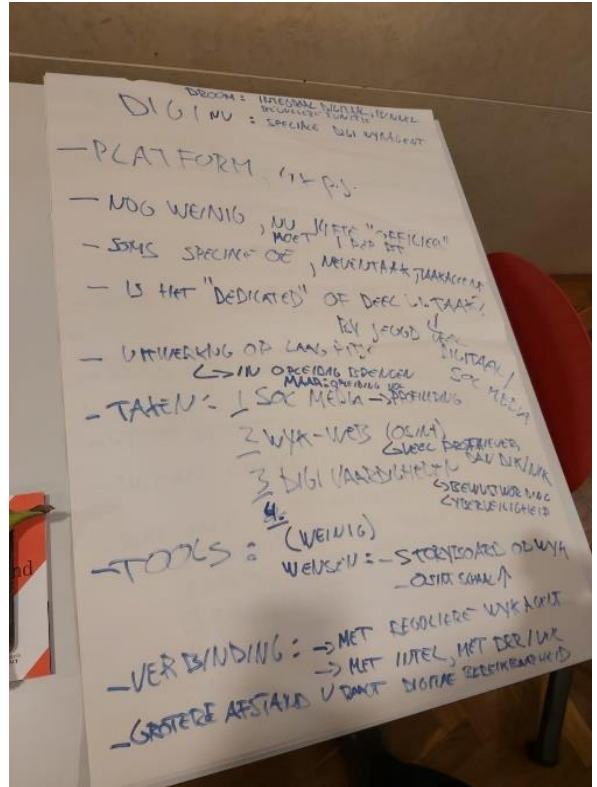 DROOM: INTEGRAAL DIGITAAL,
DIGI NU : SPECIALE DIGI WYKAGENT
- PLATFORM,
- NOG WEINIG, NU
MOET 1 PER
- SOMS SPECIFIEKE, NEVENTAAK, TAAKACCENT
- IS HET "DEDICATED" OF DEEL V. TAAK?
BIJ JEUGD
DIGITAAL/
SOC MEDIA
- UITWERKING OP LAAG
↳ IN OPLEIDING
MAAR:
- TAKEN: 1 SOC MEDIA → PROFILERING
2 WYK-WEB (OSINT)
↳ VEEL
3 DIGI VAARDIGHEDEN
↳ BEWUSTWORDING
CYBERVEILIGHEID
4.
- TOOLS: (WEINIG)
WENSEN: - STORYBOARD OP WYK
- OSINT SCHAAL ↑
- VERBINDING: → MET REGULIERE WYKAGENT
→ MET INTEL, MET
- GROTERE AFSTAND DIGITALE BEREIKBAARHEID
nd